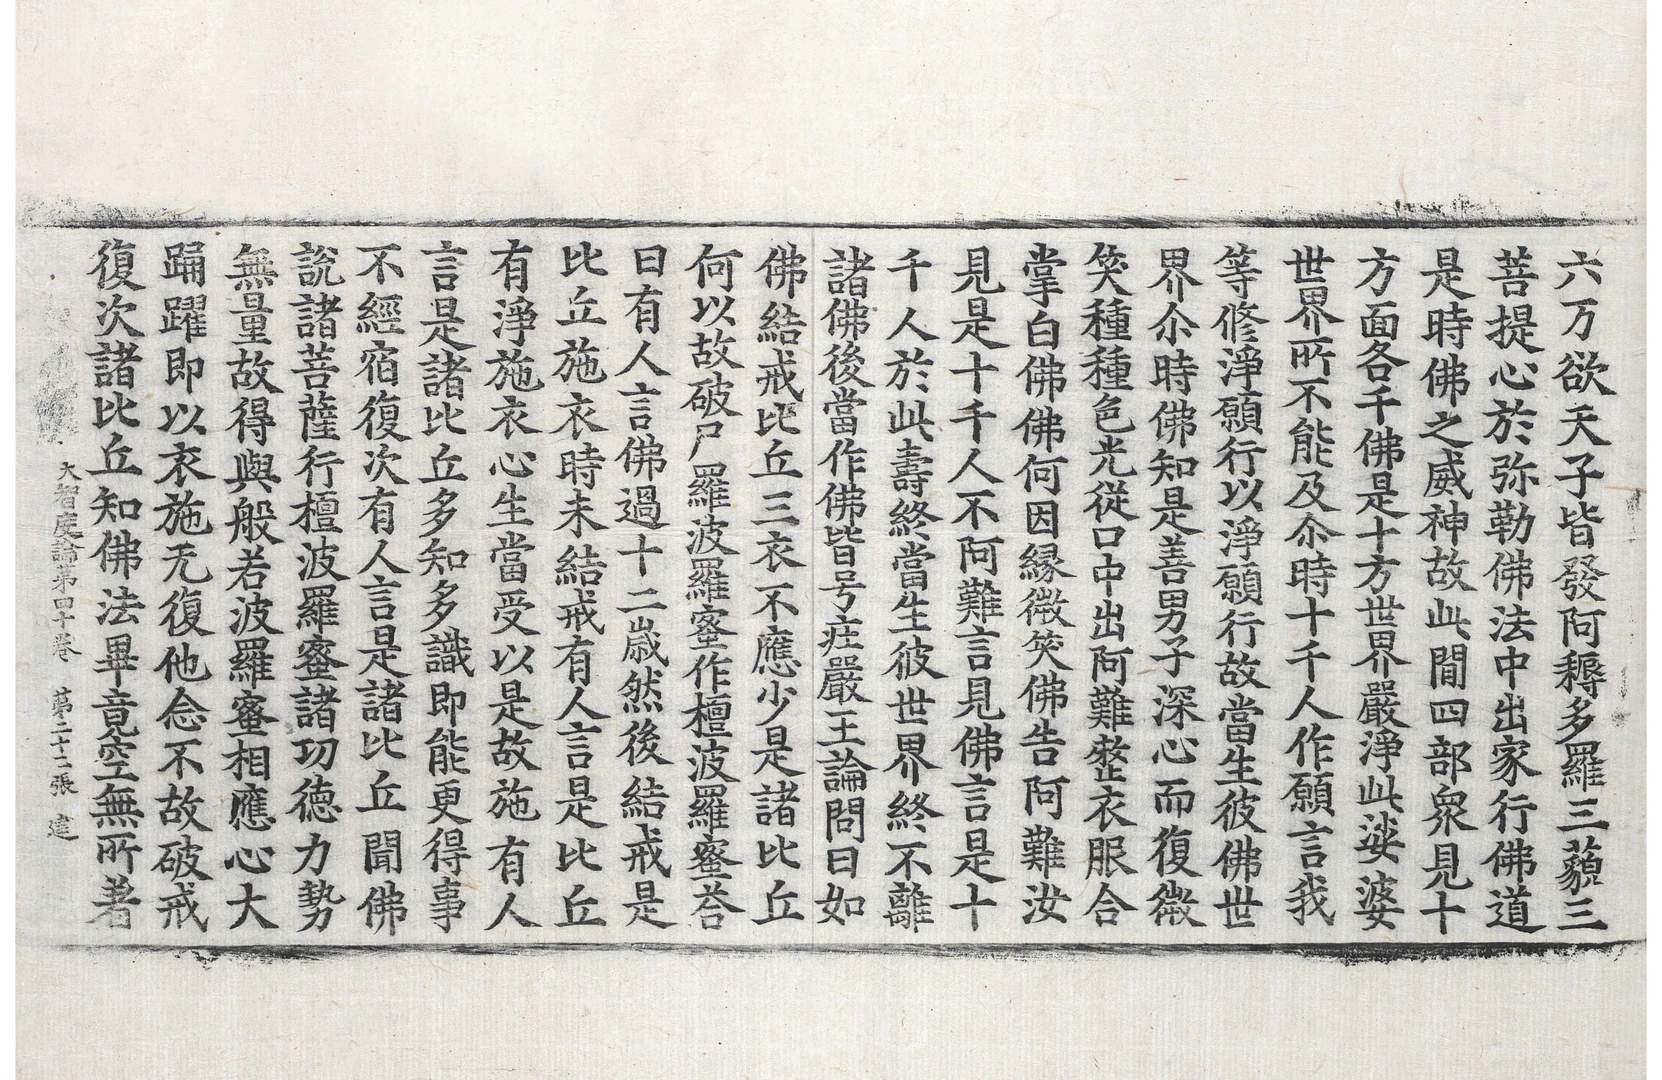 六万欲天子皆發阿耨多羅三藐三
菩提心於弥勒佛法中出家行佛道
是時佛之威神故此閒四部衆見十
方面各千佛是十方世界嚴淨此娑婆
世界所不能及尒時十千人作願言我
等修淨願行以淨願行故當生彼佛世
界尒時佛知是善男子深心而復微
笑種種色光從口中出阿難整衣服合
掌白佛佛何因縁微笑佛告阿難汝
見是十千人不阿難言見佛言是十
千人於此壽終當生彼世界終不離
諸佛後當作佛皆号庄嚴王論問曰如
佛結戒比丘三衣不應少是諸比丘
何以故破尸羅波羅蜜作檀波羅蜜荅
曰有人言佛過十二歲然後結戒是
比丘施衣時未結戒有人言是比丘
有淨施衣心生當受以是故施有人
言是諸比丘多知多識即能更得事
不經宿復次有人言是諸比丘聞佛
說諸菩薩行檀波羅蜜諸功德力勢
無量故得與般若波羅蜜相應心大
踊躍即以衣施无復他念不故破戒
復次諸比丘知佛法畢竟空無所著
大智度論第四十卷 第二十二張 建